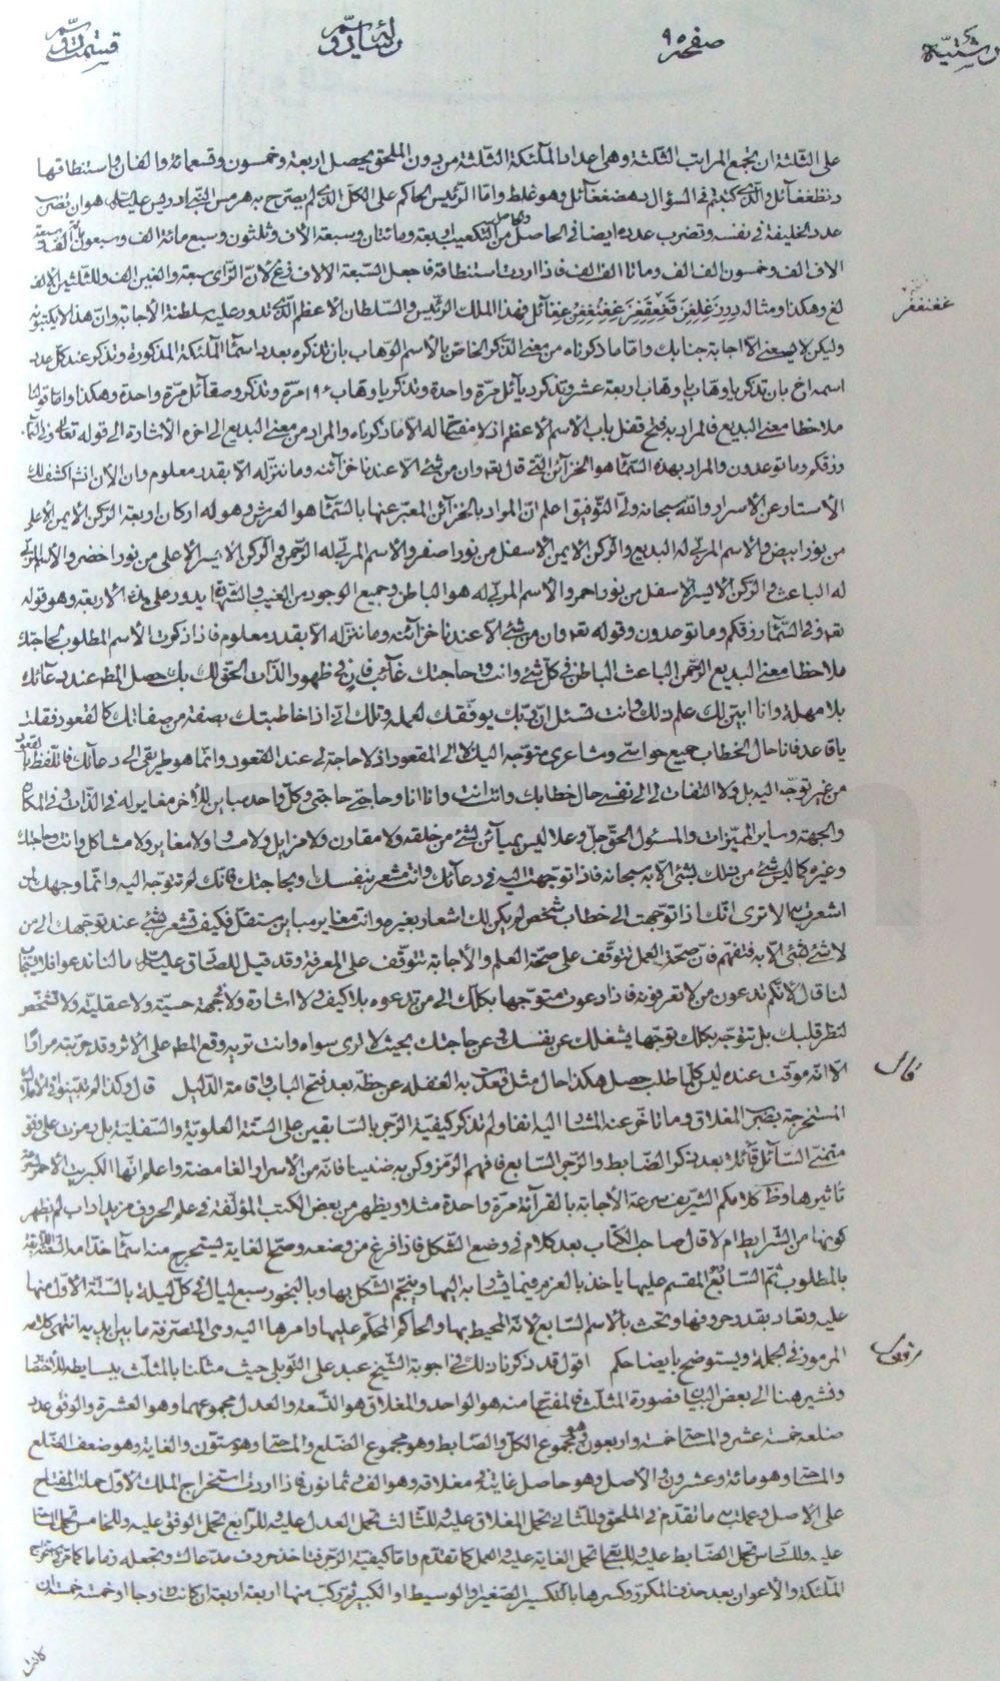 صفحه ٩٥
على الثلثة ان تجمع المراتب الثلثة وهى اعداد الملئكة الثلثة من دون الملحق يحصل اربعة وخمسون وتسعمائة والفان واستنطاقها
عدد الخليفة في نفسه وتضرب عدده ايضا في الحاصل من التكعيب اربعة ومائتان وسبعة الاف وثلثون وسبع مائة الف وسبعون الف الف
الاف الف وخمسون الف الف ومائتا الف الف فاذا اردت استنطاقه فاجعل السبعة الالاف زغ لان الزاى سبعة والغين الف وللثلثين الالف
لغ وهكذا ومثاله فهذا الملك الرئيس والسلطان الاعظم الذى تدور عليه سلطنة الاجابة وان هذا لا يكتبونه
ولكن لا يسعنى الا اجابة جنابك واما ما ذكرناه من معنى الذكر الخاص بالاسم الوهاب بان تذكره بعدد اسماء الملئكة المذكورة وتذكر عند كل عدد
اسمه اخ بان تذكر يا وهاب يا وهاب اربعة عشر وتذكر ديائل مرة واحدة وتذكر يا وهاب ١٩٦ مرة وتذكر وصقائل مرة واحدة وهكذا واما قولنا
ملاحظا معنى البديع فالمراد به فتح قفل باب الاسم الاعظم اذ لا مفتح له الا ما ذكرناه والمراد من معنى البديع الى اخره الاشارة الى قوله تعالى وفى السماء
رزقكم وما توعدون والمراد بهذه السماء هو الخزائن التى قال تعه وان من شئ الا عندنا خزائنه وما ننزله الا بقدر معلوم وان الان انشاء اكشف لك
الاستار عن الاسرار والله سبحانه ولى التوفيق اعلم ان المراد بالخزائن المعبر عنها بالسماء هو العرش وهو له اركان اربعة الركن الايمن الاعلى
من نور ابيض والاسم المربى له البديع والركن الايمن الاسفل من نور اصفر والاسم المربى له الرحمن والركن الايسر الاعلى من نور اخضر والاسم المربى
له الباعث والركن الايسر الاسفل من نور احمر والاسم المربى له هو الباطن وجميع الوجود من الغيب والشهادة يدور على هذه الاربعة وهو قوله
تعه وفى السماء رزقكم وما توعدون وقوله تعه وان من شئ الا عندنا خزائنه وما ننزله الا بقدر معلوم فاذا ذكرت الاسم المطلوب لحاجتك
ملاحظا معنى البديع الرحمن الباعث الباطن فى كل شئ وانت وحاجتك غائب فان فى ظهور الذات الحق لك بك حصل المط عند دعائك
بلا مهلة وانا ابين لك علم ذلك وانت تسئل ان ربك يوفقك لعمله وتلك انى اذا خاطبتك بصفة من صفاتك كالقعود فقلت
يا قاعد فانا حال الخطاب جميع حواسى ومشاعرى متوجه اليك لا الى القعود اذ لا حاجة لى عند القعود وانما هو طريقى الى دعائك فاتلفظ بالقعود
من غير توجه اليه بل ولا التفات لى الى نفسى حال خطابك وانت انت وانا انا وحاجتى حاجتى وكل واحد مباين للاخر مغاير له فى الذات وفى المكان
والجهة وساير المميزات والمسئول الحق جل وعلا ليس بمباين لشئ من خلقه ولا مقارن ولا مزايل ولا مساو ولا مغاير ولا مشاكل وانت وحاجتك
وغيره كما ليس شئ من ذلك بشئ الا به سبحانه فاذا توجهت اليه فى دعائك وانت مشعر بنفسك او بحاجتك فانك لم تتوجه اليه وانما وجهك لمن
اشعرت به الا ترى انك اذا توجهت الى خطاب شخص لم يكن لك اشعار بغيره وانت مغاير مباين مستقل فكيف تشعر بشئ عند توجهك الى من
لا شئ لشئ الا به فتفهم فان صحة العمل تتوقف على صحة العلم والاجابة تتوقف على المعرفة وقد قيل للصادق عليه السلام ما لنا ندعو فلا يستجاب
لنا قال لانكم تدعون من لا تعرفونه فاذا دعوت متوجها بكلك الى من تدعوه بلا كيف ولا اشارة ولا جهة حسية ولا عقلية ولا تشخص
لنظر قلبك بل تتوجه بكلك توجها يشغلك عن نفسك وعن حاجتك بحيث لا ترى سواه وانت تريد وقع المط على الاثر وقد جربته مرارا
الا انه موقت عنده ليس كلما طلب حصل هكذا حال مثلى بعدت به الغفلة عن حظه بعد فتح الباب واقامة الدليل قال وكذا لم تبينوا
المستخرجة بضرب المغلاق وما تاخر عنه المشار اليه انفا ولم تذكر كيفية الزجر بالسابقين على الستة العلوية والسفلية بل رمزت على وفق
متمنى السائل قائلا بعد ذكر الضابط والزجر السابع فافهم الرمز وكن به ضنينا فانه من الاسرار الغامضة واعلم انها الكبريت الاحمر
تاثيرها وظ كلامكم الشريف سرعة الاجابة بالقرائة مرة واحدة مثلا ويظهر من بعض الكتب المؤلفة فى علم الحروف مزيد اداب لم يظهر
كونها من الشرايط ام لا قال صاحب الكتاب بعد كلام فى وضع الشكل فاذا فرغ من وضعه وصح الغاية ليستخرج منه اسماء خدامه
بالمطلوب ثم السابع المقسم عليها ياخذ بالعزم فيما يشابه اليها وينجم الشكل بها وبالبخور سبع ليال فى كل ليلة بالستة الاول منها
عليه وتعاد بقدر حروفها وتحث بالاسم السابع لانه المحيط بها والحاكم المحكم عليها وامرها اليه وهى المتصرفة ما بين يديه انتهى كلامه
المرموز فى الجملة ويستوضح بايضاحكم اقول قد ذكرنا ذلك فى اجوبة الشيخ عبد على التوبلى حيث مثلنا بالمثلث
ونشير هنا الى بعض البيان فصورة المثلث المفتاح منه هو الواحد والمغلاق هو التسعة والعدل مجموعهما وهو العشرة والوفق عدد
ضلعه خمسة عشر والمساحة خمسة واربعون وهو مجموع الكل والضابط وهو مجموع الضلع والمساحة وهو ستون والغاية وهو ضعف الضلع
والمساحة وهو مائة وعشرون والاصل وهو حاصل غايته فى مغلاقه وهو الف وثمانون فاذا اردت استخراج الملك الاول حملت المفتاح
على الاصل وعملت به ما تقدم فى الملحق وللثانى تحمل المغلاق عليه وللثالث تحمل العدل عليه وللرابع تحمل الوفق عليه وللخامس تحمل المساحة
عليه وللسادس تحمل الضابط عليه وللسابع تحمل الغاية عليه والعمل كما تقدم واما كيفية الزجر فتاخذ حروف مدعاك وتجعله زماما كما
الملئكة والاعوان بعد حذف المكرر وتكسرها بالتكسير الصغير او الوسيط او الكبير ثم تركب منها اربعة اربعة ان كانت زوجا او خمسة خمسة ان
كانت
قال